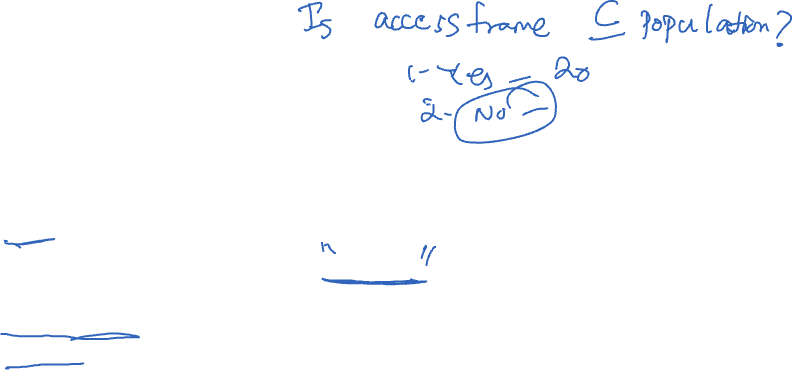 Is access frame ⊆ population?
1- Yes = 20
2- No =
" "